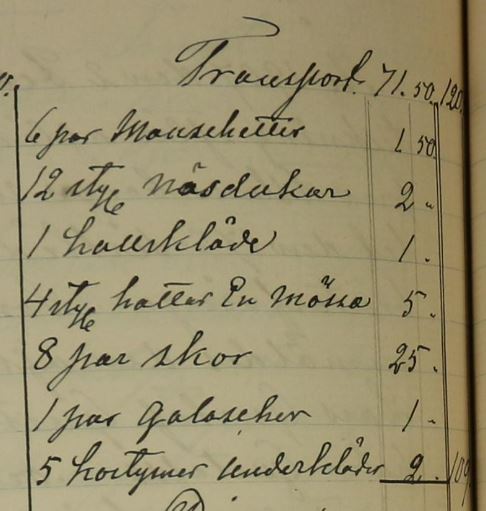 Transport. 71.50. 120
6 par Manschetter 1 50.
12 styk näsdukar 2 "
1 halskläde 1 "
4 styk hattar En mössa 5 "
8 par skor 25 "
1 par galoscher 1 "
5 kostymer underkläder 2 " 109